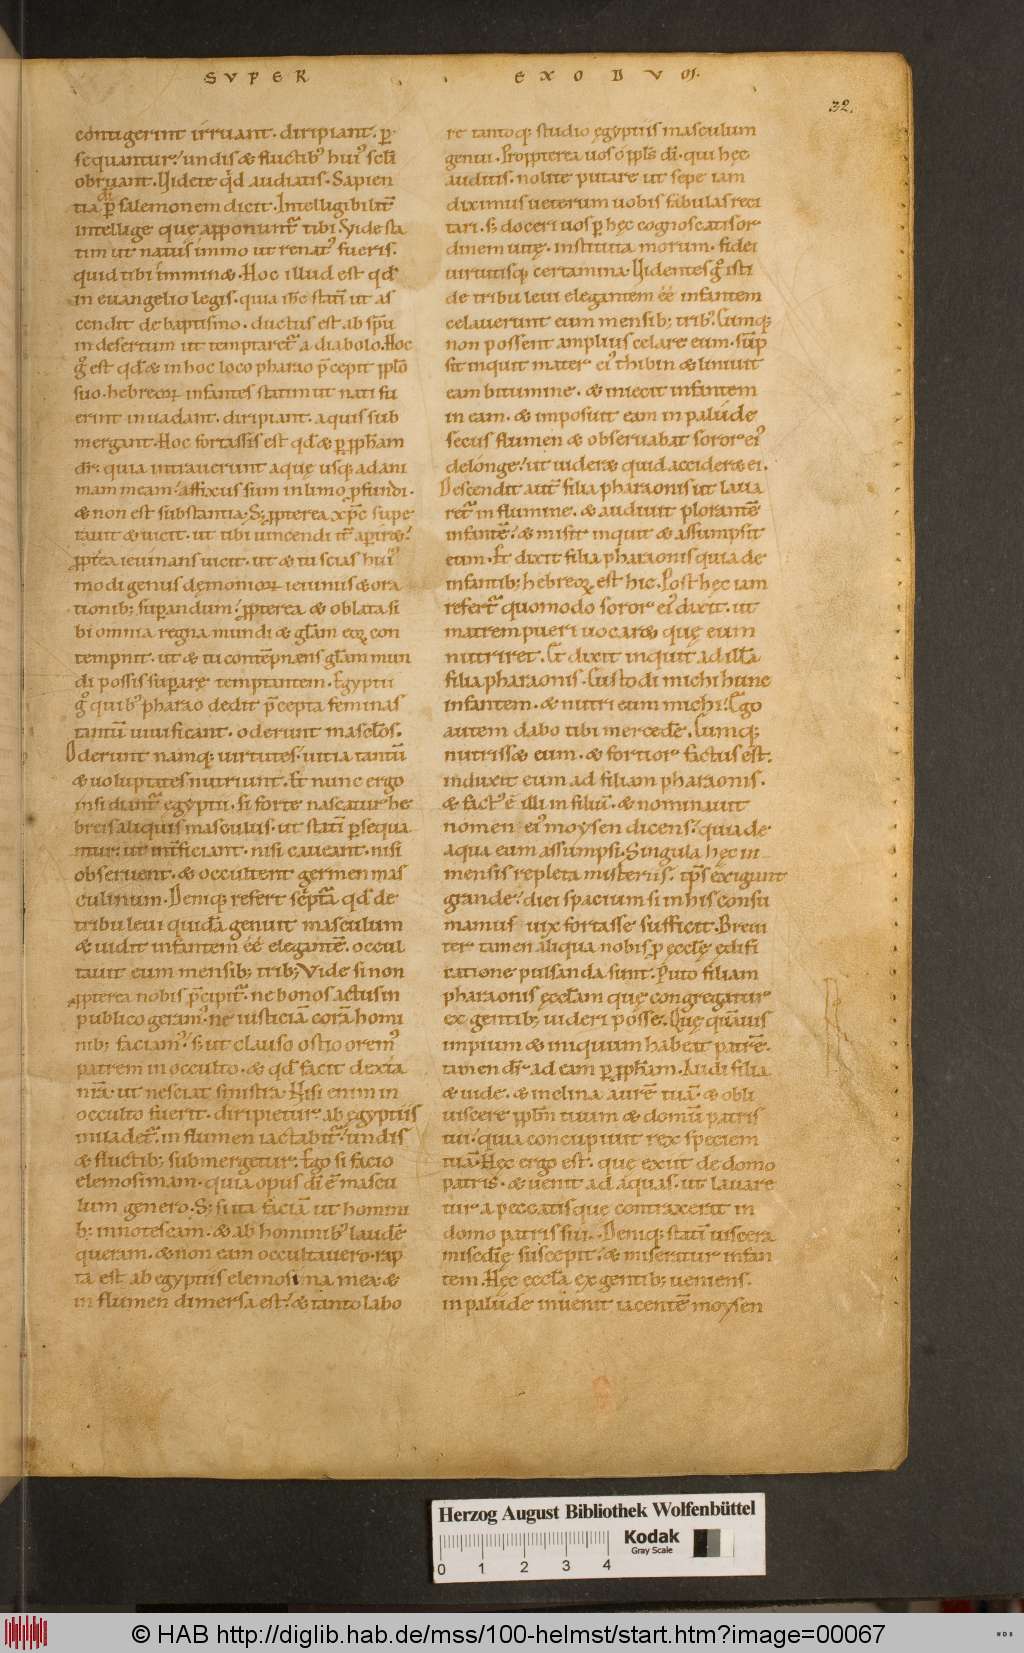 SUPER EXODUM.
32.
contigerint irruant. diripiant. p̄
sequantur. undis & fluctib' hui' scl̄i
obruant. Videte q̄d audiatis. Sapien
tia p̄ salemonem dicit. Intelligibilit̄
intellige quę apponunt̄ tibi. Vide sta
tim ut natus immo ut renat' fueris.
quid tibi immin&. Hoc illud est qd̄
in euangelio legis. quia ih̄c statī ut as
cendit de baptismo. ductus est ab sp̄u
in desertum ut temptaret̄ a diabolo. Hoc
g° est qd̄ & in hoc loco pharao p̄cepit pp̄lo
suo. hebreoꝝ infantes statim ut nati fu
erint inuadant. diripiant. aquis sub
mergant. Hoc fortassis est qd̄ & ꝑ pp̄ham
dr̄. quia intrauerunt aquę usq; ad ani
mam meam. affixus sum in limo ꝓfundi.
& non est substantia. S; ꝓpterea xp̄c supe
rauit & uicit. ut tibi uincendi it̄ apir&.
ꝓpt̄ea ieiunans uicit. ut & tu scias hui'
modi genus demonioꝝ ieiuniis & ora
tionib; suꝑandum. ꝓpterea & oblata si
bi omnia regna mundi & gl̄am eoꝝ con
tempnit. ut & tu contēpnens gl̄am mun
di possis suꝑare temptantem. Egyptii
g° quib' pharao dedit p̄cepta feminas
tantū uiuificant. oderunt mascl̄os.
Oderunt namq; uirtutes. uitia tantū
& uoluptates nutriunt. Et nunc ergo
insidiant̄ egyptii. si forte nascatur he
breis aliquis masculus. ut statī ꝑsequa
ntur. ut inter̄ficiant. nisi caueant. nisi
obseruent. & occultent germen mas
culinum. Deniq; refert scriptā qd̄ de
tribu leui quidā genuit masculum
& uidit infantem ēē elegantē. occul
tauit eum mensib; trib; Vide si non
ꝓpterea nobis p̄cipit̄. ne bonos actus in
publico geram'. ne iusticiā corā homi
nib; faciam'. s; ut clauso ostio orem'
patrem in occulto. & qd̄ facit dextā
nr̄a. ut nesciat sinistra. Nisi enim in
occulto fuerit. diripietur ab ęgyptiis
inuadet̄. in flumen iactabit̄. undis
& fluctib; submergetur. Ego si facio
elemosinam. quia opus dī ē mascu
lum genero. S; si ita faciā ut homini
b; innotescam. & ab hominib' laudē
queram. & non eam occultauero. rap
ta est ab egyptiis elemosina mea. &
in flumen dimersa est. & tanto labo
re tantoq; studio ęgyptiis masculum
genui. Propterea uos o pp̄ls dī. qui hęc
auditis. nolite putare ut sepe iam
diximus ueterum uobis fabulas reci
tari. s; doceri uos ꝑ hęc cognoscatis or
dinem uitę. instituta morum. fidei
uirtutisq; certamina. Videntes g° isti
de tribu leui elegantem ēē infantem
celauerunt eum mensib; trib'. Cumq;
non possent amplius celare eum. sūp
sit inquit mater ei' thibin & liniuit
eam bitumine. & iniecit infantem
in eam. & imposuit eam in palude
secus flumen & obseruabat soror ei'
de longe. ut uider& quid accider& ei.
Descendit aut̄ filia pharaonis ut laua
ret̄ in flumine. & audiuit plorantē
infantē. & misit inquit & assumpsit
eum. Et dixit filia pharaonis quia de
infantib; hebreoꝝ est hic. Post hęc iam
refert̄ quomodo soror ei' dixit. ut
matrem pueri uocar& quę eum
nutriret. Et dixit inquit ad illā
filia pharaonis. Custodi michi hunc
infantem. & nutri eum michi. Ego
autem dabo tibi mercedē. Cumq;
nutriss& eum. & fortior factus est.
induxit eum ad filiam pharaonis.
& fact' ē illi in filiū. & nominauit
nomen ei' moysen dicens. quia de
aqua eum assumpsi. Singula hęc in
mensis repleta misteriis. tp̄s exigunt
grande. diei spacium si in his consu
mamus uix fortasse sufficit. Breui
ter tamen aliqua nobis ꝓ ęccl̄ę edifi
catione pulsanda sunt. Puto filiam
pharaonis ęccl̄am que congregatur
ex gentib; uideri posse. Quę quāuis
impium & iniquum habeat patrē.
tamen dr̄ ad eam ꝑ pp̄ham. Audi filia
& uide. & inclina aurē tuā. & obli
uiscere pp̄lm tuum & domū patris
tui. quia concupiuit rex speciem
tuā. Hęc ergo est. quę exiit de domo
patris. & uenit ad aquas. ut lauare
tur a peccatis que contraxerat in
domo patris sui. Deniq; statī uiscera
misc̄dię suscepit. & miseratur infan
tem. Hęc ęccl̄a ex gentib; ueniens.
in palude inuenit iacentē moysen
Herzog August Bibliothek Wolfenbüttel
0 1 2 3 4
Kodak
Gray Scale
© HAB http://diglib.hab.de/mss/100-helmst/start.htm?image=00067